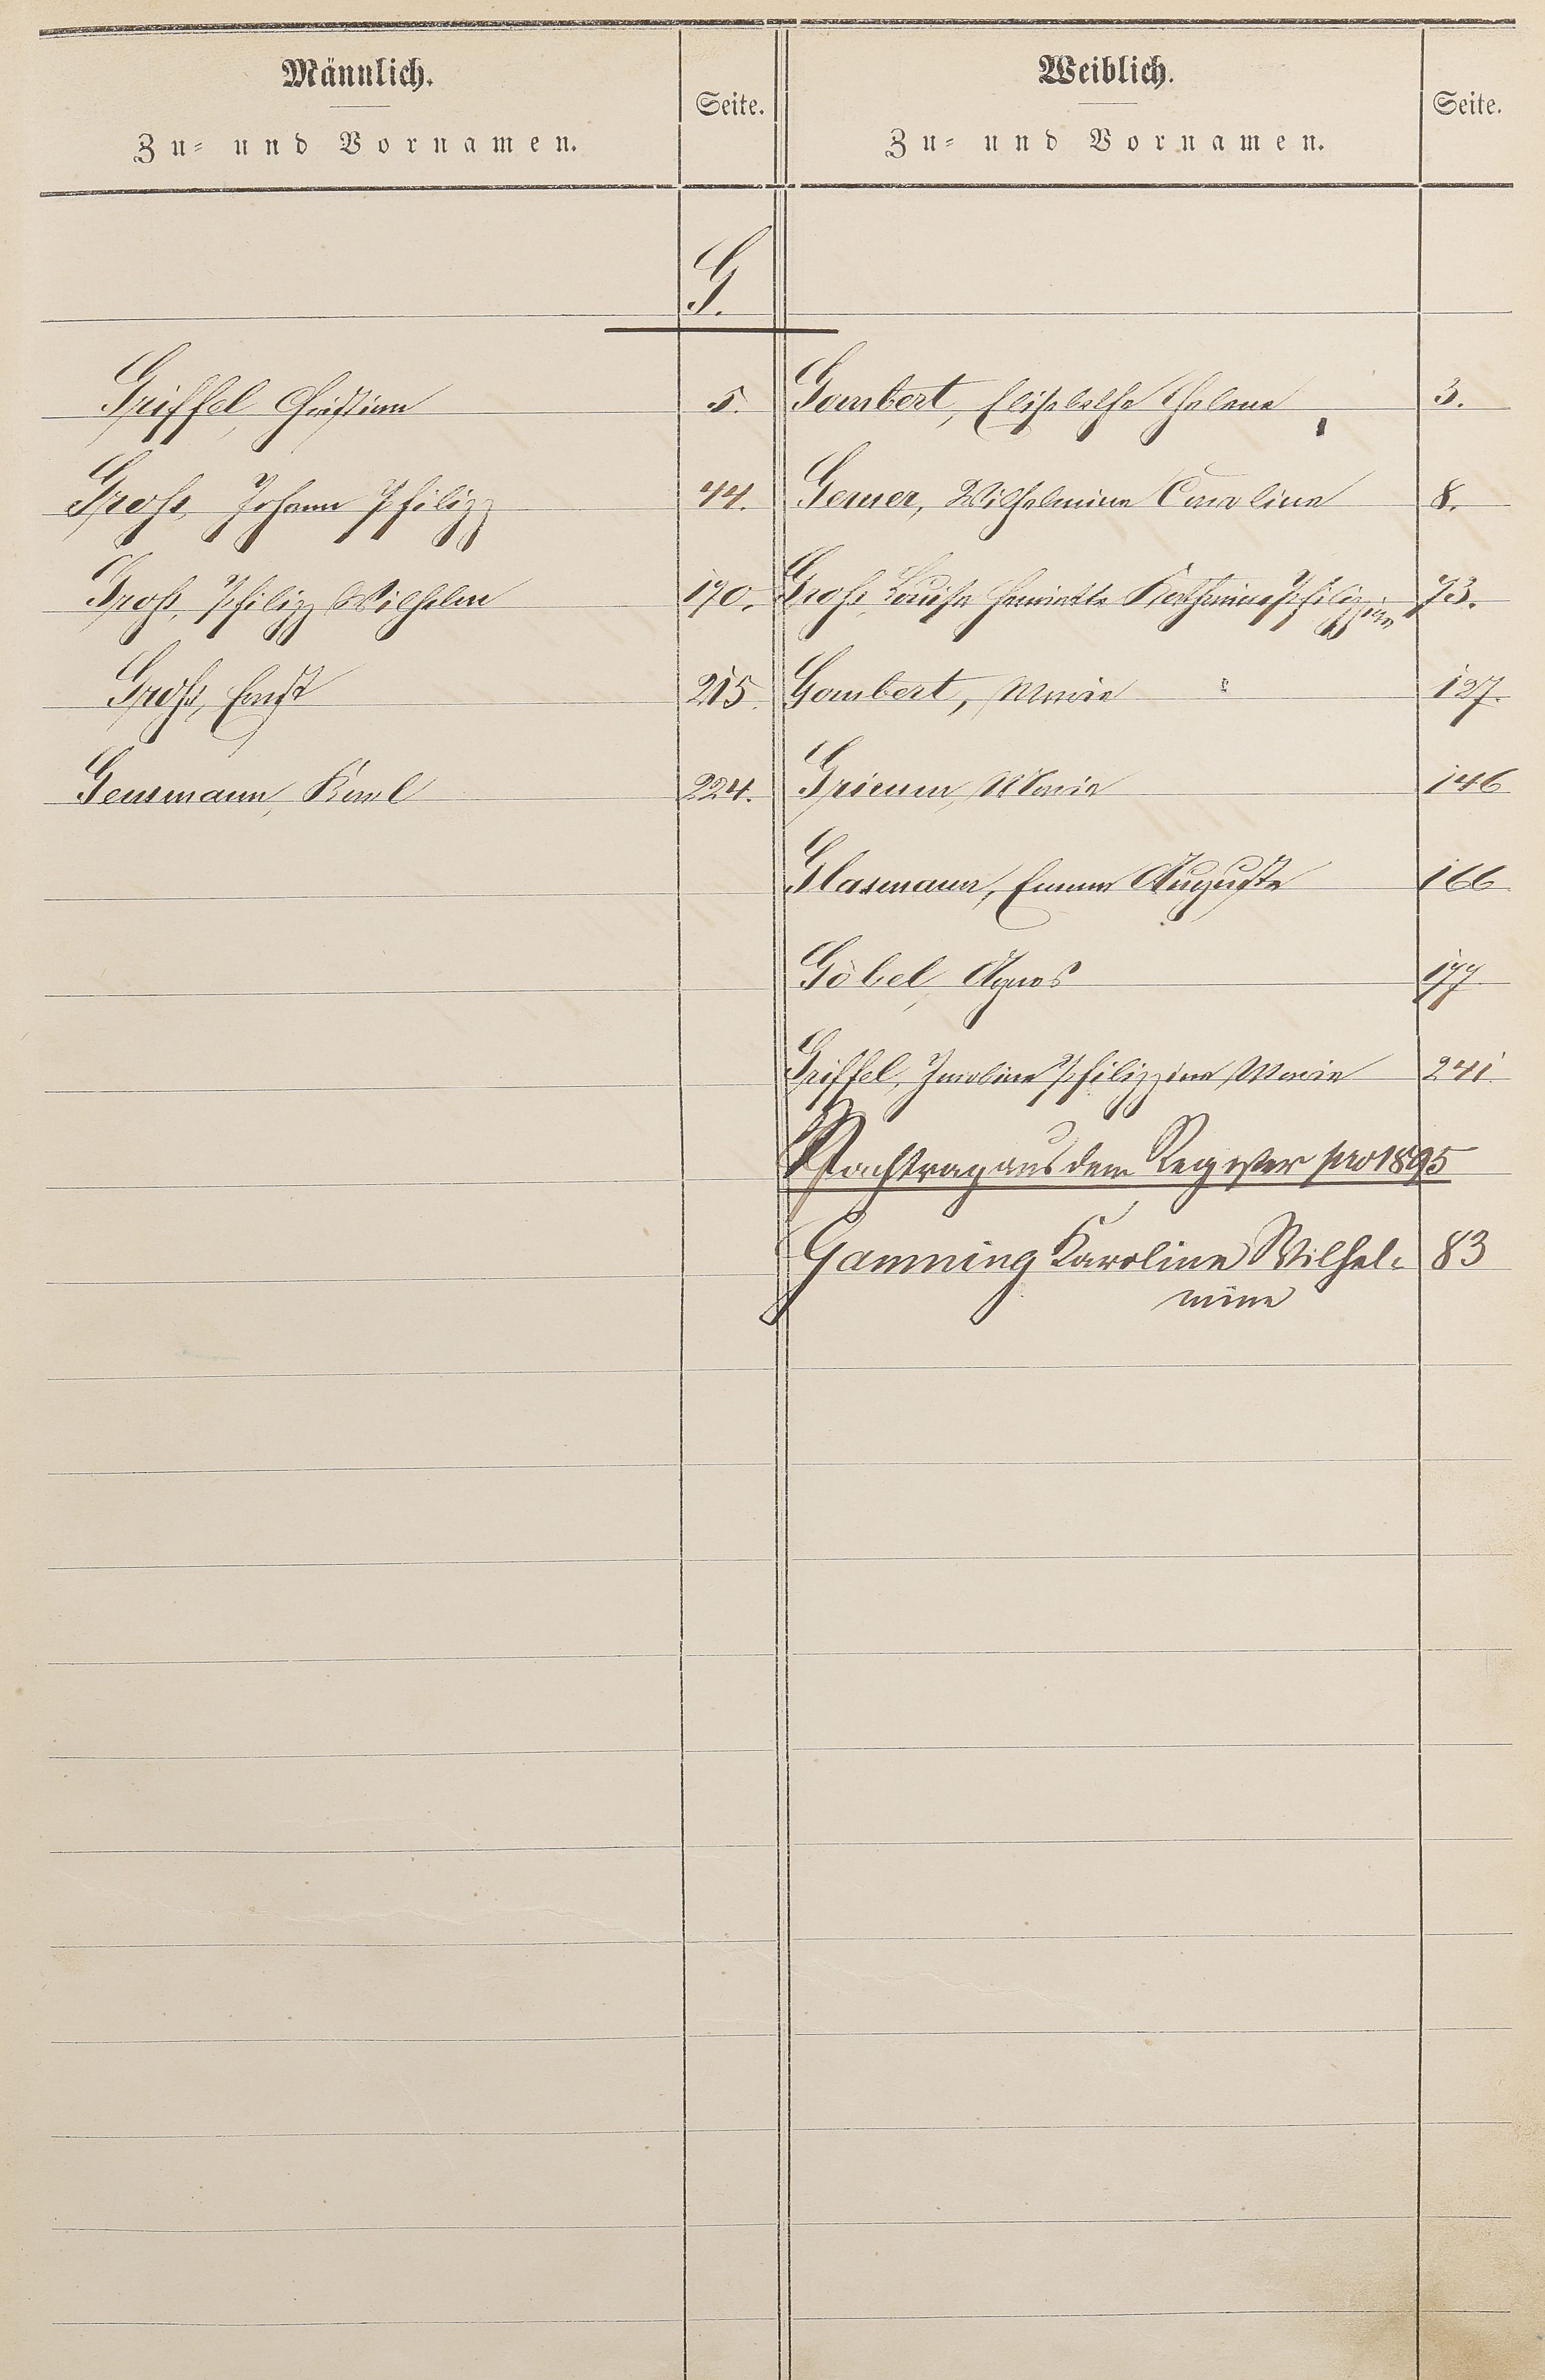 Männlich.
Zu- und Vornamen.
Seite.
Weiblich.
Zu- und Vornamen.
Seite.
G.
Griffel, Christian 5.
Groß, Johann Philipp 44.
Groß, Philipp Wilhelm 170.
Groß, Ernst 215.
Gensmann, Karl 224.
Gombert, Elisabethe Helene 3.
Gerner, Wilhelmine Caroline 8.
Groß, Louise Henriette Katharine Philippine 73.
Gombert, Marie 127.
Marie 146
Glasmann, Emma Auguste 166
Göbel, Agnes 177
Griffel, Philippine Marie 241
Nachtrag aus dem Register pro 1895
Gamning Karoline Wilhel- 83
mine